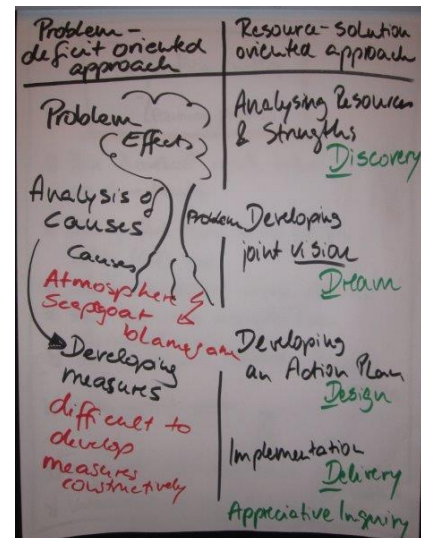 Problem-
deficit oriented
approach
Problem
Effects
Analysis of
Causes
Problem
Causes
Atmosphere
Scapegoat
blamegame
Developing
measures
difficult to
develop
measures
constructively
Resource-solution
oriented approach
Analysing Resources
& Strengths
Discovery
Developing
joint vision
Dream
Developing
an Action Plan
Design
Implementation
Delivery
Appreciative Inquiry